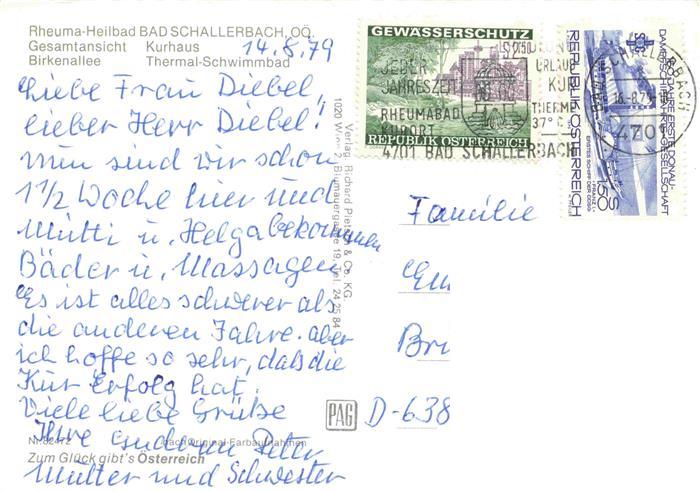 Rheuma-Heilbad BAD SCHALLERBACH, OÖ.
Gesamtansicht Kurhaus
Birkenallee Thermal-Schwimmbad
14.8.79
Liebe Frau Diebel,
lieber Herr Diebel!
nun sind wir schon
1 1/2 Woche hier und
Mutti u. Helga bekommen
Bäder u. Massagen
Es ist alles schwerer als
die anderen Jahre. aber
ich hoffe so sehr, daß die
Kur Erfolg hat.
Viele liebe Grüße
Ihre
Mutter und Schwester
Nr. 82472 nach Original-Farbaufnahmen
Zum Glück gibt's Österreich
Verlag: Richard Pietsch & Co. KG.
1020 Wien 2, Blumauergasse 19, Tel. 24 25 84
PAG
GEWÄSSERSCHUTZ
S 2.50
REPUBLIK ÖSTERREICH
JEDER
JAHRESZEIT
RHEUMABAD
KURORT
4701 BAD SCHALLERBACH
URLAUB
KUR
THERME
37° C
ERSTE DONAU-
DAMPFSCHIFFAHRTS-GESELLSCHAFT
REPUBLIK ÖSTERREICH
S 1.50
4701
Familie
Em
Bru
D-638